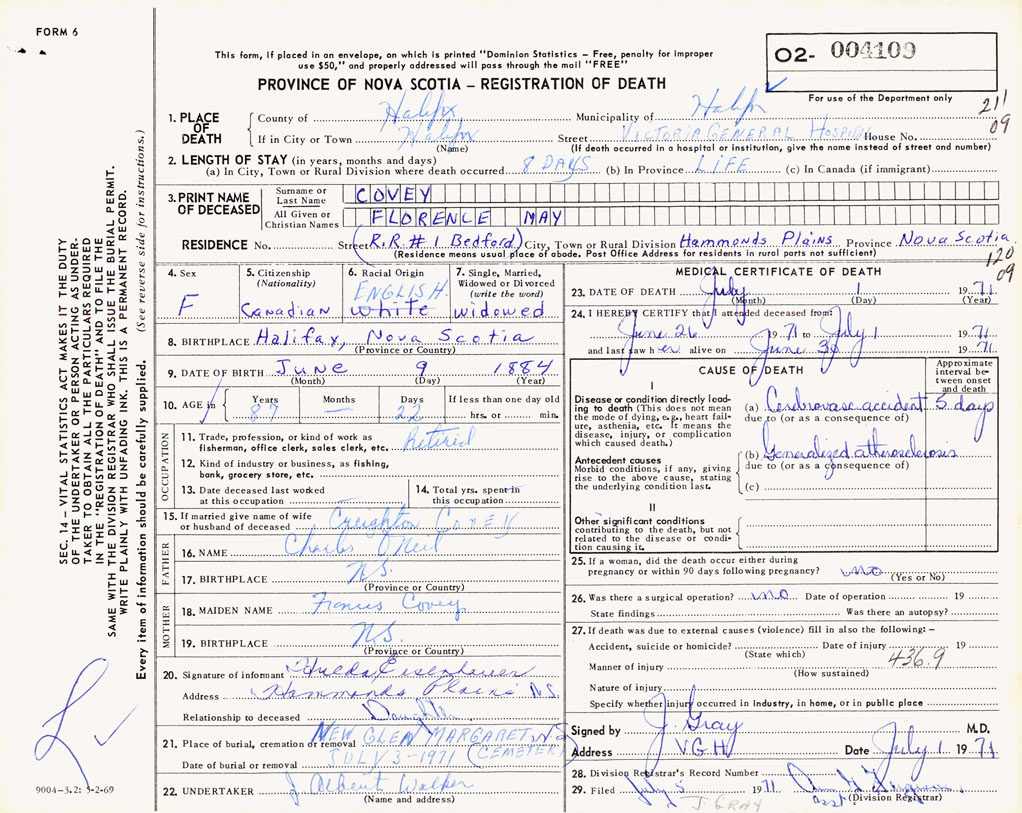 FORM 6
This form, if placed in an envelope, on which is printed "Dominion Statistics – Free, penalty for improper
use $50," and properly addressed will pass through the mail "FREE"
O2- 004109
PROVINCE OF NOVA SCOTIA – REGISTRATION OF DEATH
For use of the Department only
211
09
1. PLACE OF DEATH
County of Halifax Municipality of Halifax
If in City or Town Halifax Street VICTORIA GENERAL HOSPITAL House No.
(Name) (If death occurred in a hospital or institution, give the name instead of street and number)
2. LENGTH OF STAY (in years, months and days)
(a) In City, Town or Rural Division where death occurred 8 DAYS (b) In Province LIFE (c) In Canada (if immigrant)
3. PRINT NAME OF DECEASED
Surname or Last Name COVEY
All Given or Christian Names FLORENCE MAY
RESIDENCE No. Street (R.R.#1 Bedford) City, Town or Rural Division Hammonds Plains Province Nova Scotia
(Residence means usual place of abode. Post Office Address for residents in rural parts not sufficient)
120
09
4. Sex
F
5. Citizenship
(Nationality)
Canadian
6. Racial Origin
ENGLISH
white
7. Single, Married,
Widowed or Divorced
(write the word)
widowed
8. BIRTHPLACE Halifax, Nova Scotia
(Province or Country)
9. DATE OF BIRTH June 9 1884
(Month) (Day) (Year)
10. AGE in
Years Months Days If less than one day old
87 — 22 hrs. or min.
OCCUPATION
11. Trade, profession, or kind of work as
fisherman, office clerk, sales clerk, etc. Retired
12. Kind of industry or business, as fishing,
bank, grocery store, etc.
13. Date deceased last worked
at this occupation
14. Total yrs. spent in
this occupation
15. If married give name of wife
or husband of deceased Creighton Covey
FATHER
16. NAME Charles O'Neil
17. BIRTHPLACE N.S.
(Province or Country)
MOTHER
18. MAIDEN NAME Frances Covey
19. BIRTHPLACE N.S.
(Province or Country)
20. Signature of informant Hilda Eisenhauer
Address Hammonds Plains N.S.
Relationship to deceased Daughter
21. Place of burial, cremation or removal NEW GLEN MARGARET, NS
(CEMETERY)
Date of burial or removal JULY 3-1971
22. UNDERTAKER J Albert Walker
(Name and address)
MEDICAL CERTIFICATE OF DEATH
23. DATE OF DEATH July 1 1971
(Month) (Day) (Year)
24. I HEREBY CERTIFY that I attended deceased from:
June 26 1971 to July 1 1971
and last saw her alive on June 30 1971
CAUSE OF DEATH
Approximate
interval be-
tween onset
and death
I
Disease or condition directly lead-
ing to death (This does not mean
the mode of dying, e.g., heart fail-
ure, asthenia, etc. It means the
disease, injury, or complication
which caused death.)
(a) Cerebrovasc accident 5 days
due to (or as a consequence of)
Antecedent causes
Morbid conditions, if any, giving
rise to the above cause, stating
the underlying condition last.
(b) Generalized atherosclerosis
due to (or as a consequence of)
(c)
II
Other significant conditions
contributing to the death, but not
related to the disease or condi-
tion causing it.
25. If a woman, did the death occur either during
pregnancy or within 90 days following pregnancy? no
(Yes or No)
26. Was there a surgical operation? no Date of operation 19
State findings Was there an autopsy?
27. If death was due to external causes (violence) fill in also the following: –
Accident, suicide or homicide? Date of injury 19
(State which)
436.9
Manner of injury
(How sustained)
Nature of injury
Specify whether injury occurred in industry, in home, or in public place
Signed by J. Gray M.D.
Address VGH Date July 1 1971
28. Division Registrar's Record Number
29. Filed July 5 1971
asst. (Division Registrar)
J. GRAY
SEC. 14 – VITAL STATISTICS ACT MAKES IT THE DUTY
OF THE UNDERTAKER OR PERSON ACTING AS UNDER-
TAKER TO OBTAIN ALL THE PARTICULARS REQUIRED
IN THE "REGISTRATION OF DEATH" AND TO FILE THE
SAME WITH THE DIVISION REGISTRAR WHO SHALL ISSUE THE BURIAL PERMIT.
WRITE PLAINLY WITH UNFADING INK. THIS IS A PERMANENT RECORD.
Every item of information should be carefully supplied. (See reverse side for instructions.)
9004–3.2: 5-2-69